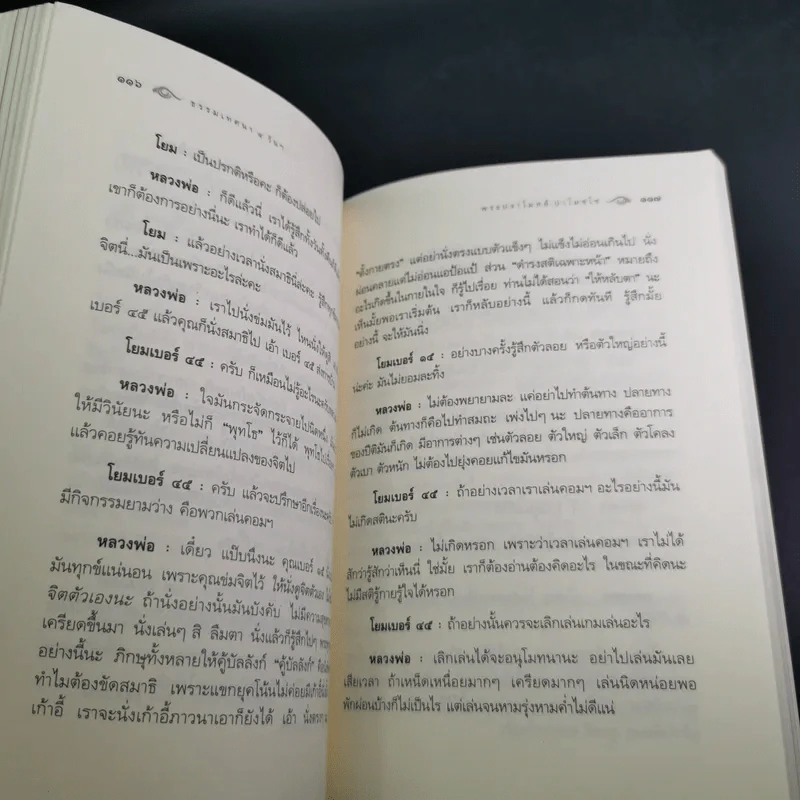 ๑๑๖
ธรรมเทศนา ๙ วันฯ
โยม : เป็นปรกติหรือคะ ก็ต้องปล่อยไป
หลวงพ่อ : ก็ดีแล้วนี่ เราได้รู้สึกทั้งวันทั้งคืน
เขาก็ต้องการอย่างนี้นะ เราทำได้ก็ดีแล้ว
โยม : แล้วอย่างเวลานั่งสมาธินี่ล่ะคะ
จิตนี่...มันเป็นเพราะอะไรล่ะคะ
หลวงพ่อ : เราไปนั่งข่มมันไว้ ไหนนั่งให้ดูซิ
เบอร์ ๔๕ แล้วคุณก็นั่งสมาธิไป เอ้า เบอร์ ๔๕
โยมเบอร์ ๔๕ : ครับ ก็เหมือนไม่รู้อะไรนะครับ
หลวงพ่อ : ใจมันกระจัดกระจายไปนิดหนึ่ง
ให้มีวินัยนะ หรือไม่ก็ “พุทโธ” ไว้ก็ได้ พุทโธไป
แล้วคอยรู้ทันความเปลี่ยนแปลงของจิตไป
โยมเบอร์ ๔๕ : ครับ แล้วจะปรึกษาอีกเรื่องนะครับ
มีกิจกรรมยามว่าง คือพวกเล่นคอมฯ
หลวงพ่อ : เดี๋ยว แป๊บนึงนะ คุณเบอร์ ๑๕
มันทุกข์แน่นอน เพราะคุณข่มจิตไว้ ให้นั่งดูจิตตัวเอง
จิตตัวเองนะ ถ้านั่งอย่างนั้นมันบังคับ ไม่มีความสุข
เครียดขึ้นมา นั่งเล่นๆ สิ ลืมตา นั่งแล้วก็รู้สึกไปๆ
อย่างนี้นะ ภิกษุทั้งหลายให้คู้บัลลังก์ “คู้บัลลังก์”
ทำไมต้องขัดสมาธิ เพราะแขกยุคโน้นไม่ค่อยมีเก้าอี้
เก้าอี้ เราจะนั่งเก้าอี้ภาวนาเอาก็ยังได้ เอ้า
พระปราโมทย์ ปาโมชฺโช
๑๑๗
“ตั้งกายตรง” แต่อย่านั่งตรงแบบตัวแข็งๆ ไม่แข็งไม่อ่อนเกินไป นั่ง
ผ่อนคลายแต่ไม่อ่อนแอป้อแป้ ส่วน “ดำรงสติเฉพาะหน้า” หมายถึง
อะไรเกิดขึ้นในกายในใจ ก็รู้ไปเรื่อย ท่านไม่ได้สอนว่า “ให้หลับตา” นะ
เห็นมั้ยพอเราเริ่มต้น เราก็หลับอย่างนี้ แล้วก็กดทันที รู้สึกมั้ย
อย่างนี้ จะให้มันนิ่ง
โยมเบอร์ ๑๕ : อย่างบางครั้งรู้สึกตัวลอย หรือตัวใหญ่อย่างนี้
น่ะค่ะ มันไม่ยอมละทิ้ง
หลวงพ่อ : ไม่ต้องพยายามละ แค่อย่าไปทำต้นทาง ปลายทาง
ก็ไม่เกิด ต้นทางก็คือไปทำสมถะ เพ่งไปๆ นะ ปลายทางคืออาการ
ของปีติมันก็เกิด มีอาการต่างๆ เช่นตัวลอย ตัวใหญ่ ตัวเล็ก ตัวโคลง
ตัวเบา ตัวหนัก ไม่ต้องไปยุ่งคอยแก้ไขมันหรอก
โยมเบอร์ ๔๕ : ถ้าอย่างเวลาเราเล่นคอมฯ อะไรอย่างนี้มัน
ไม่เกิดสตินะครับ
หลวงพ่อ : ไม่เกิดหรอก เพราะว่าเวลาเล่นคอมฯ เราไม่ได้
สักว่ารู้สักว่าเห็นนี่ ใช่มั้ย เราก็ต้องอ่านต้องคิดอะไร ในขณะที่คิดนะ
ไม่มีสติรู้กายรู้ใจได้หรอก
โยมเบอร์ ๔๕ : ถ้าอย่างนั้นควรจะเลิกเล่นเกมเล่นอะไร
หลวงพ่อ : เลิกเล่นได้จะอนุโมทนานะ อย่าไปเล่นมันเลย
เสียเวลา ถ้าเหน็ดเหนื่อยมากๆ เครียดมากๆ เล่นนิดหน่อยพอ
พักผ่อนบ้างก็ไม่เป็นไร แต่เล่นจนหามรุ่งหามค่ำไม่ดีแน่